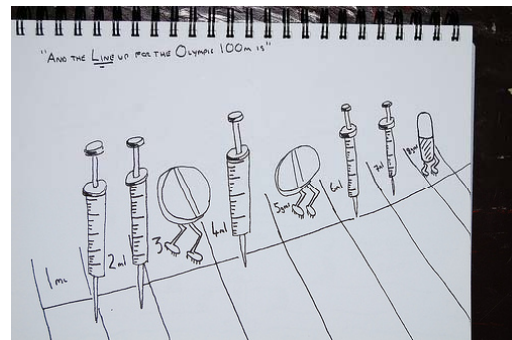 "And the Line up for the Olympic 100m is"
1ml
2ml
3
4ml
5gml
6ml
7ml